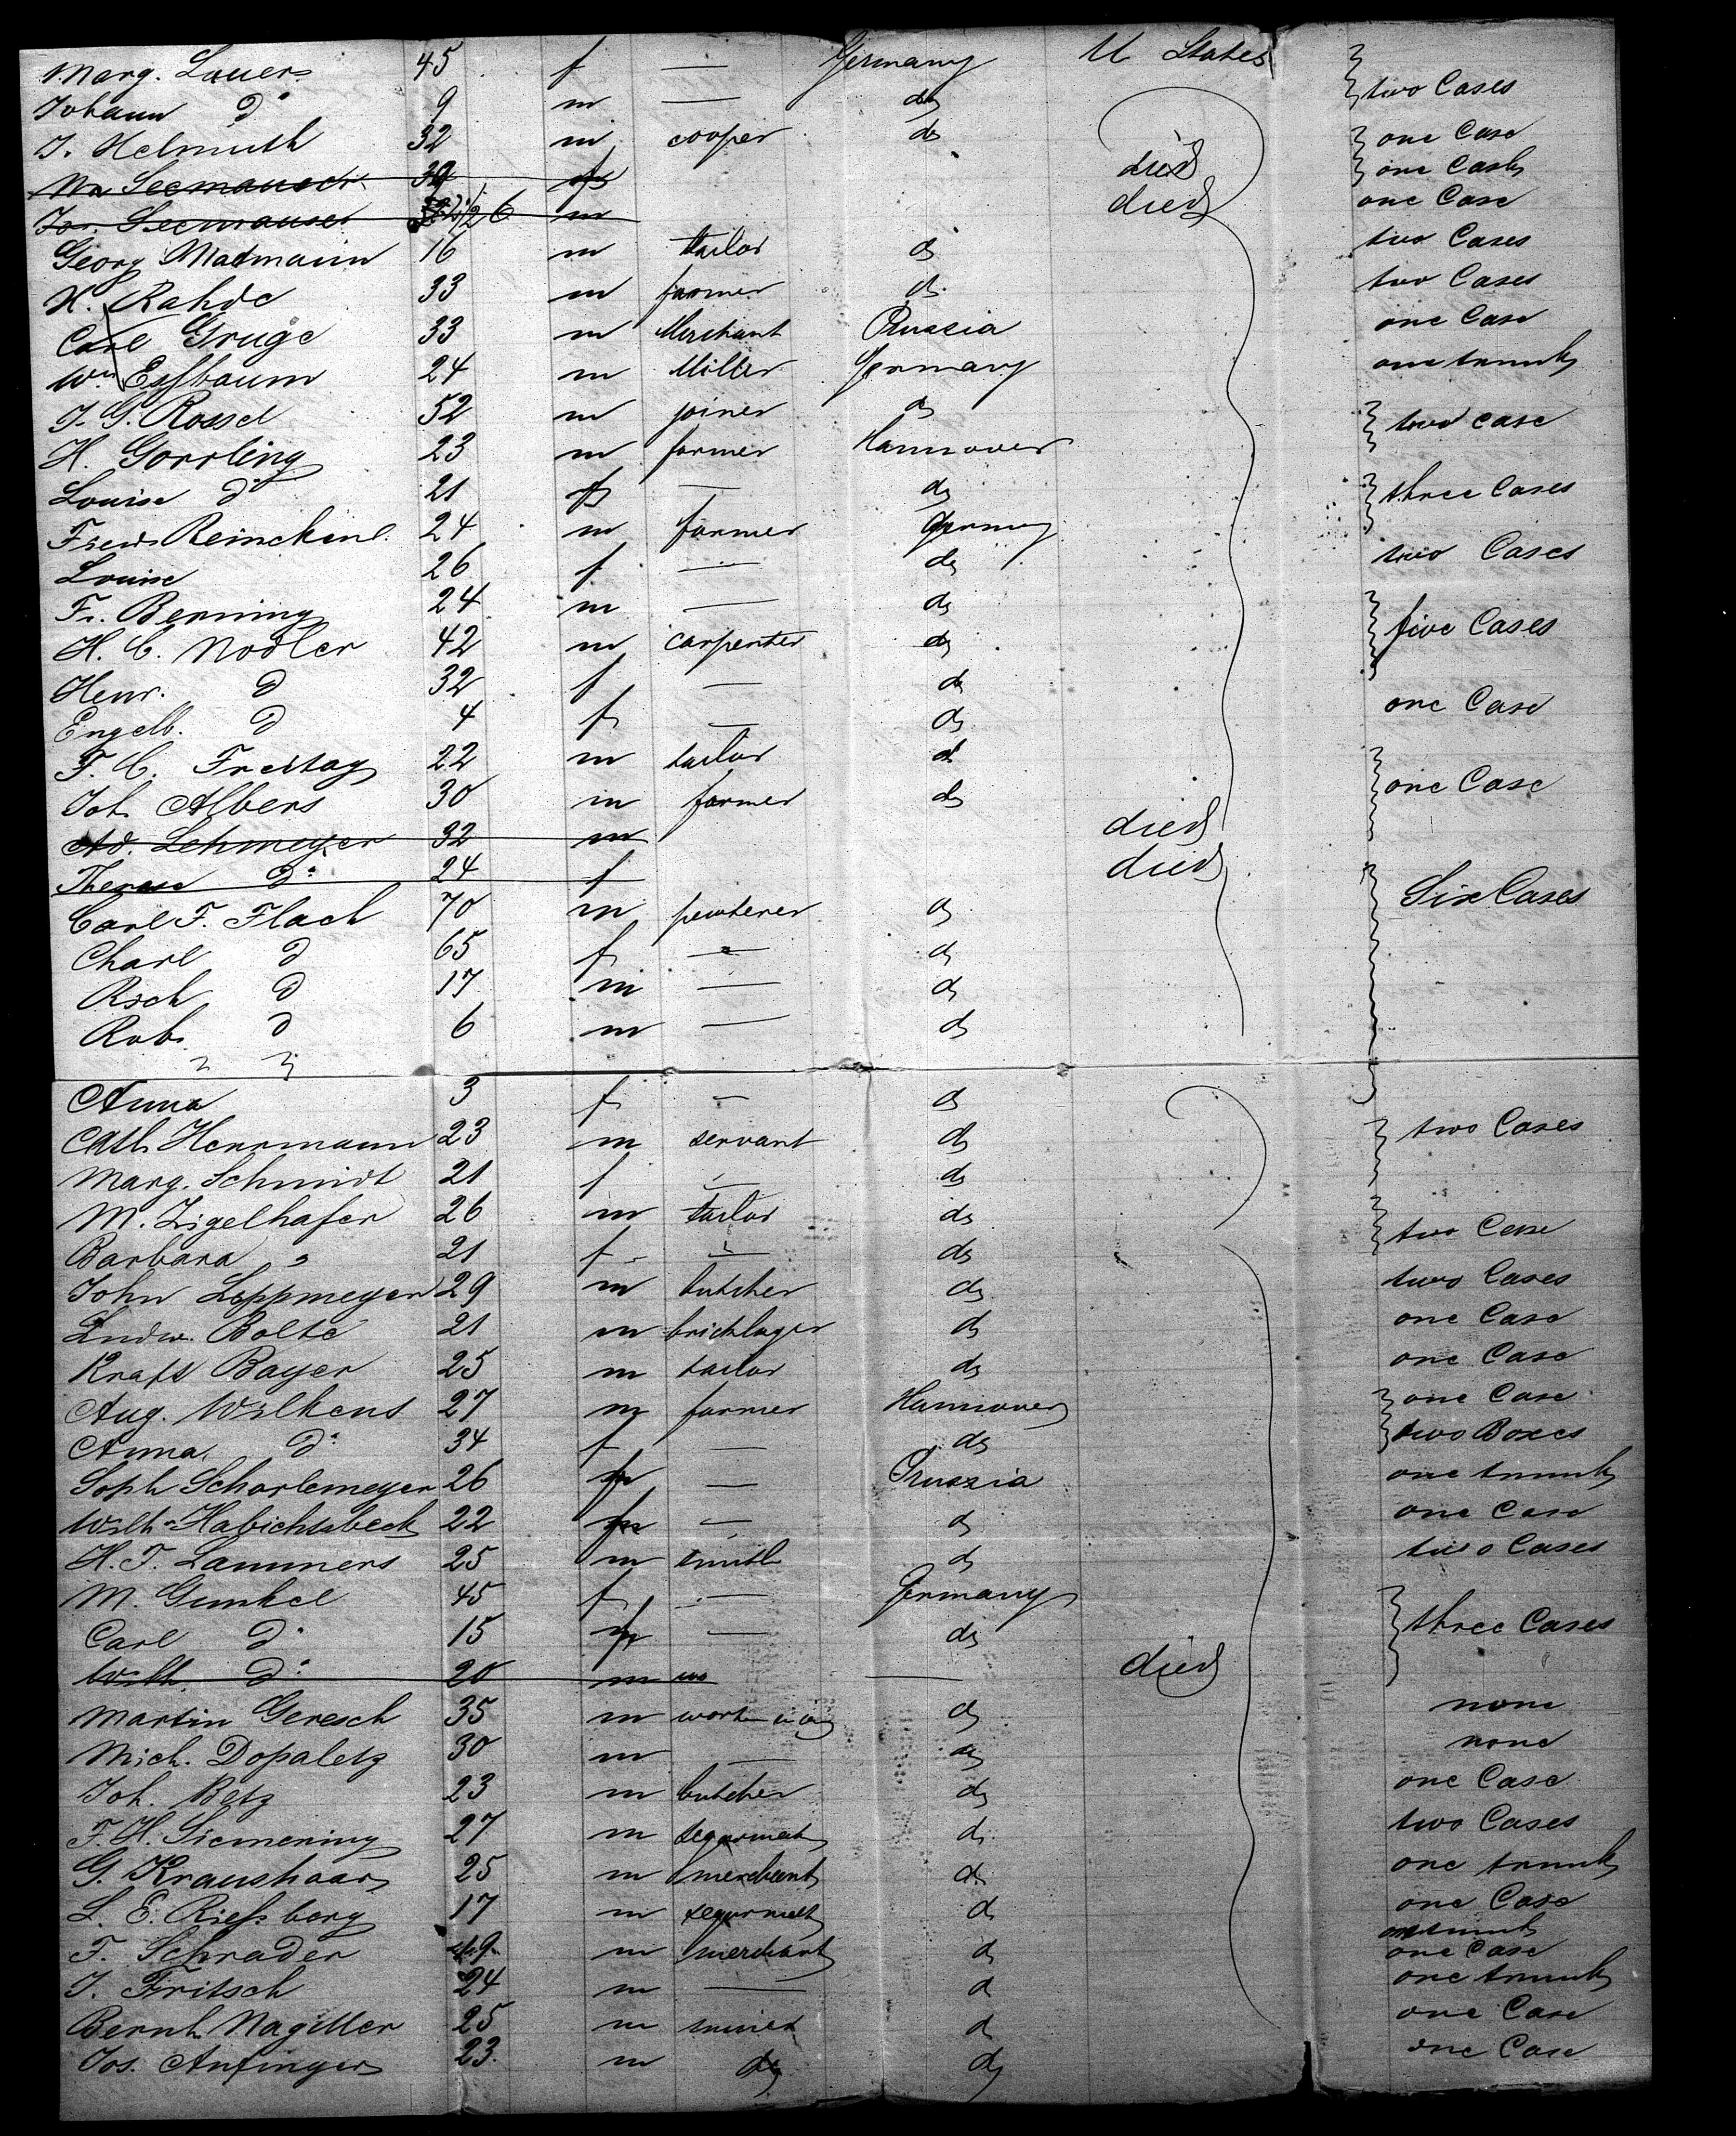 Marg. Lauers 45 f — Germany U States two Cases
Johann do 9 m — do
J. Helmuth 32 m cooper do one Case
Seemauser f died one Cask
Seemauser 6 m died one Case
Georg Madmann 16 m tailor do two Cases
H. Rahde 33 m farmer do two Cases
Carl Gruge 33 m Merchant Prussia one Case
Wm Essbaum 24 m Miller Germany one trunk
J. G. Rossel 52 m joiner do two case
H. Gorrling 23 m farmer Hannover
Louise do 21 f — do three Cases
Reinckenl. 24 m farmer Germany
Louise 26 f — do two Cases
Fr. Berning 24 m — do
H. C. Nodler 42 m carpenter do five Cases
Henr. d 32 f — do
Engelb. d 4 f — do one Case
F. C. Freitag 22 m tailor do
Joh. Albers 30 m farmer do one Case
Ad. Lehmeyer 32 m died
Therese do 24 f died
Carl F. Flach 70 m pewterer do Six Cases
Charl d 65 f — do
Rich d 17 m — do
Rob. d 6 m — do
Anna 3 f — do
Cath Herrmann 23 m servant do two Cases
Marg. Schmidt 21 f — do
M. Zigelhafer 26 m tailor do two Case
Barbara " 21 f — do
John Loppmeyer 29 m butcher do two Cases
Ludw. Bolte 21 m bricklayer do one Case
Kraft Bayer 25 m tailor do one Case
Aug. Wilkens 27 m farmer Hannover one Case
Anna. do 34 f — do two Boxes
Soph Scharlemeyer 26 f — Prussia one trunk
Wilh. Habichtsbeck 22 f — do one Case
H. F. Lammers 25 m smith do two Cases
M. Gunkel 45 f — Germany
Carl do 15 — do three Cases
Wilh. do 20 m — died
Martin Geresch 35 m do none
Mich. Dopaletz 30 m — do none
Joh. Betz 23 m butcher do one Case
F. H. Siemening 27 m do two Cases
G. Kraushaar 25 m merchant do one trunk
L. E. Riessberg 17 m do one Case
one trunk
F. Schrader m merchant do one Case
J. Fritsch 24 m — do one trunk
Bernh Nagiller 25 m miner do one Case
Jos. Anfinger 23 m do do one Case